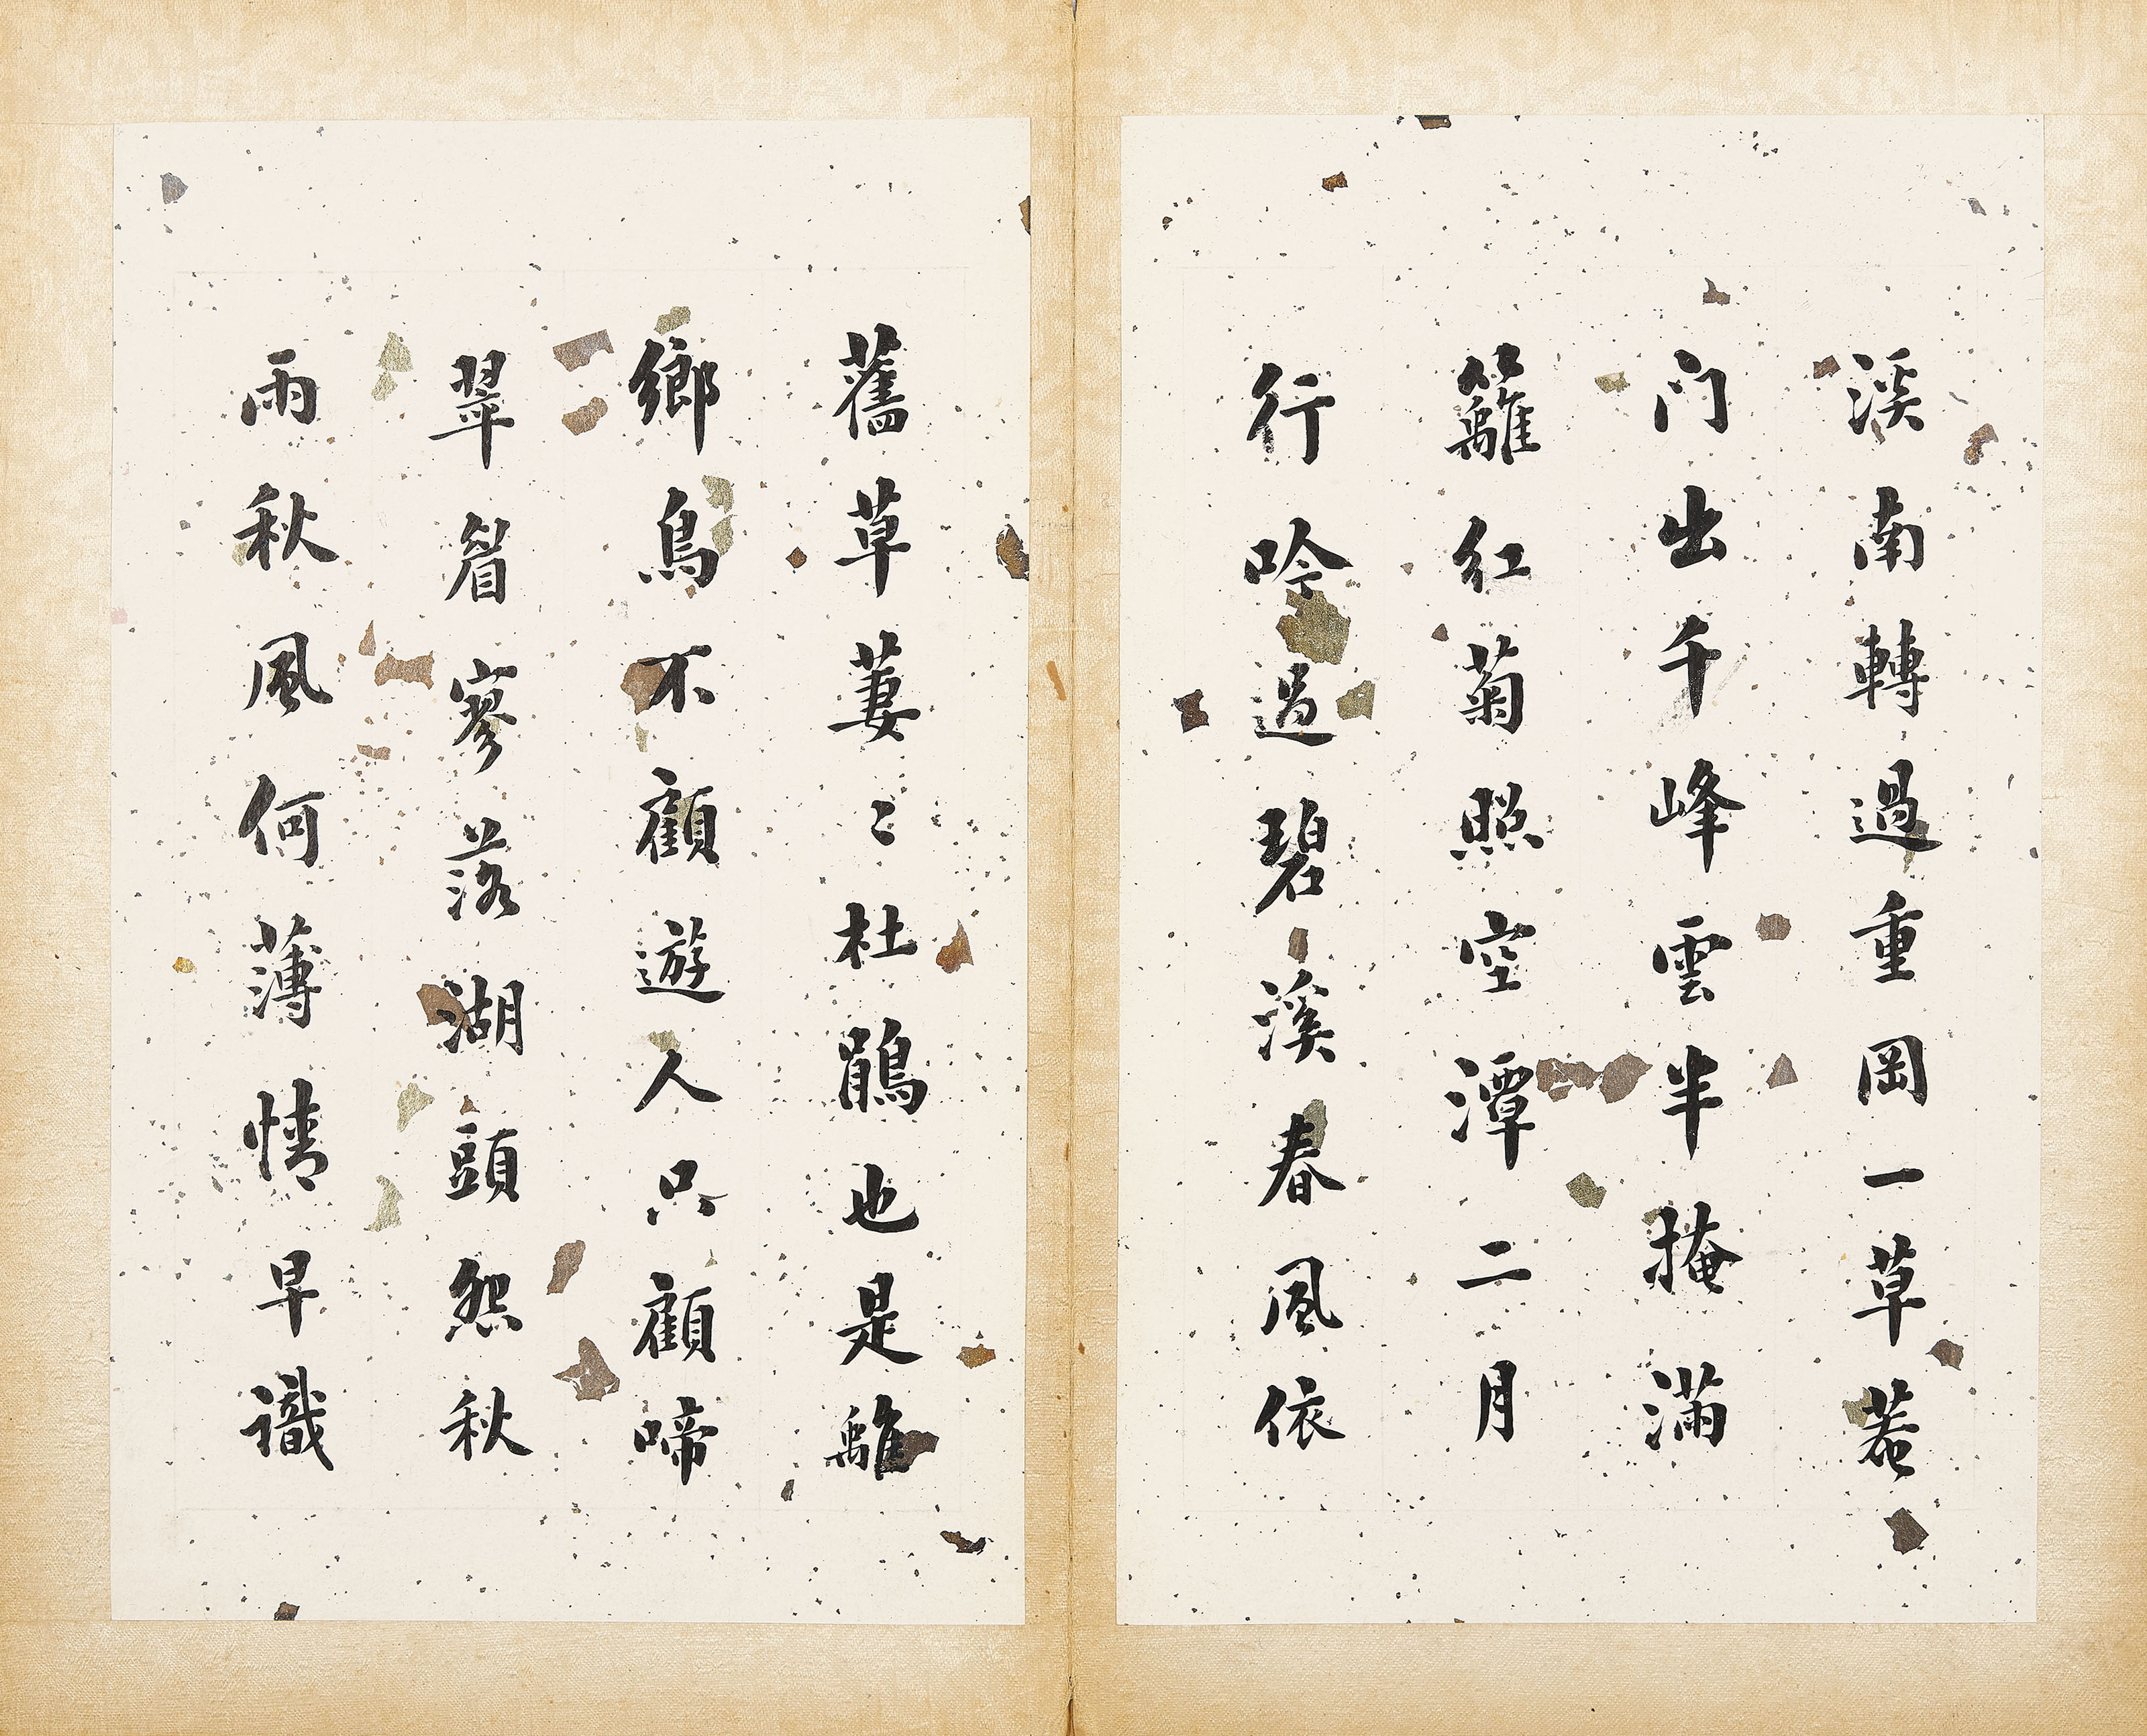 溪南轉過重岡一草菴
门出千峰雲半掩滿
籬紅菊照空潭二月
行吟過碧溪春風依
舊草萋〻杜鵑也是離
鄉鳥不顧遊人只顧啼
翠眉寥落湖頭怨秋
雨秋風何薄情早識